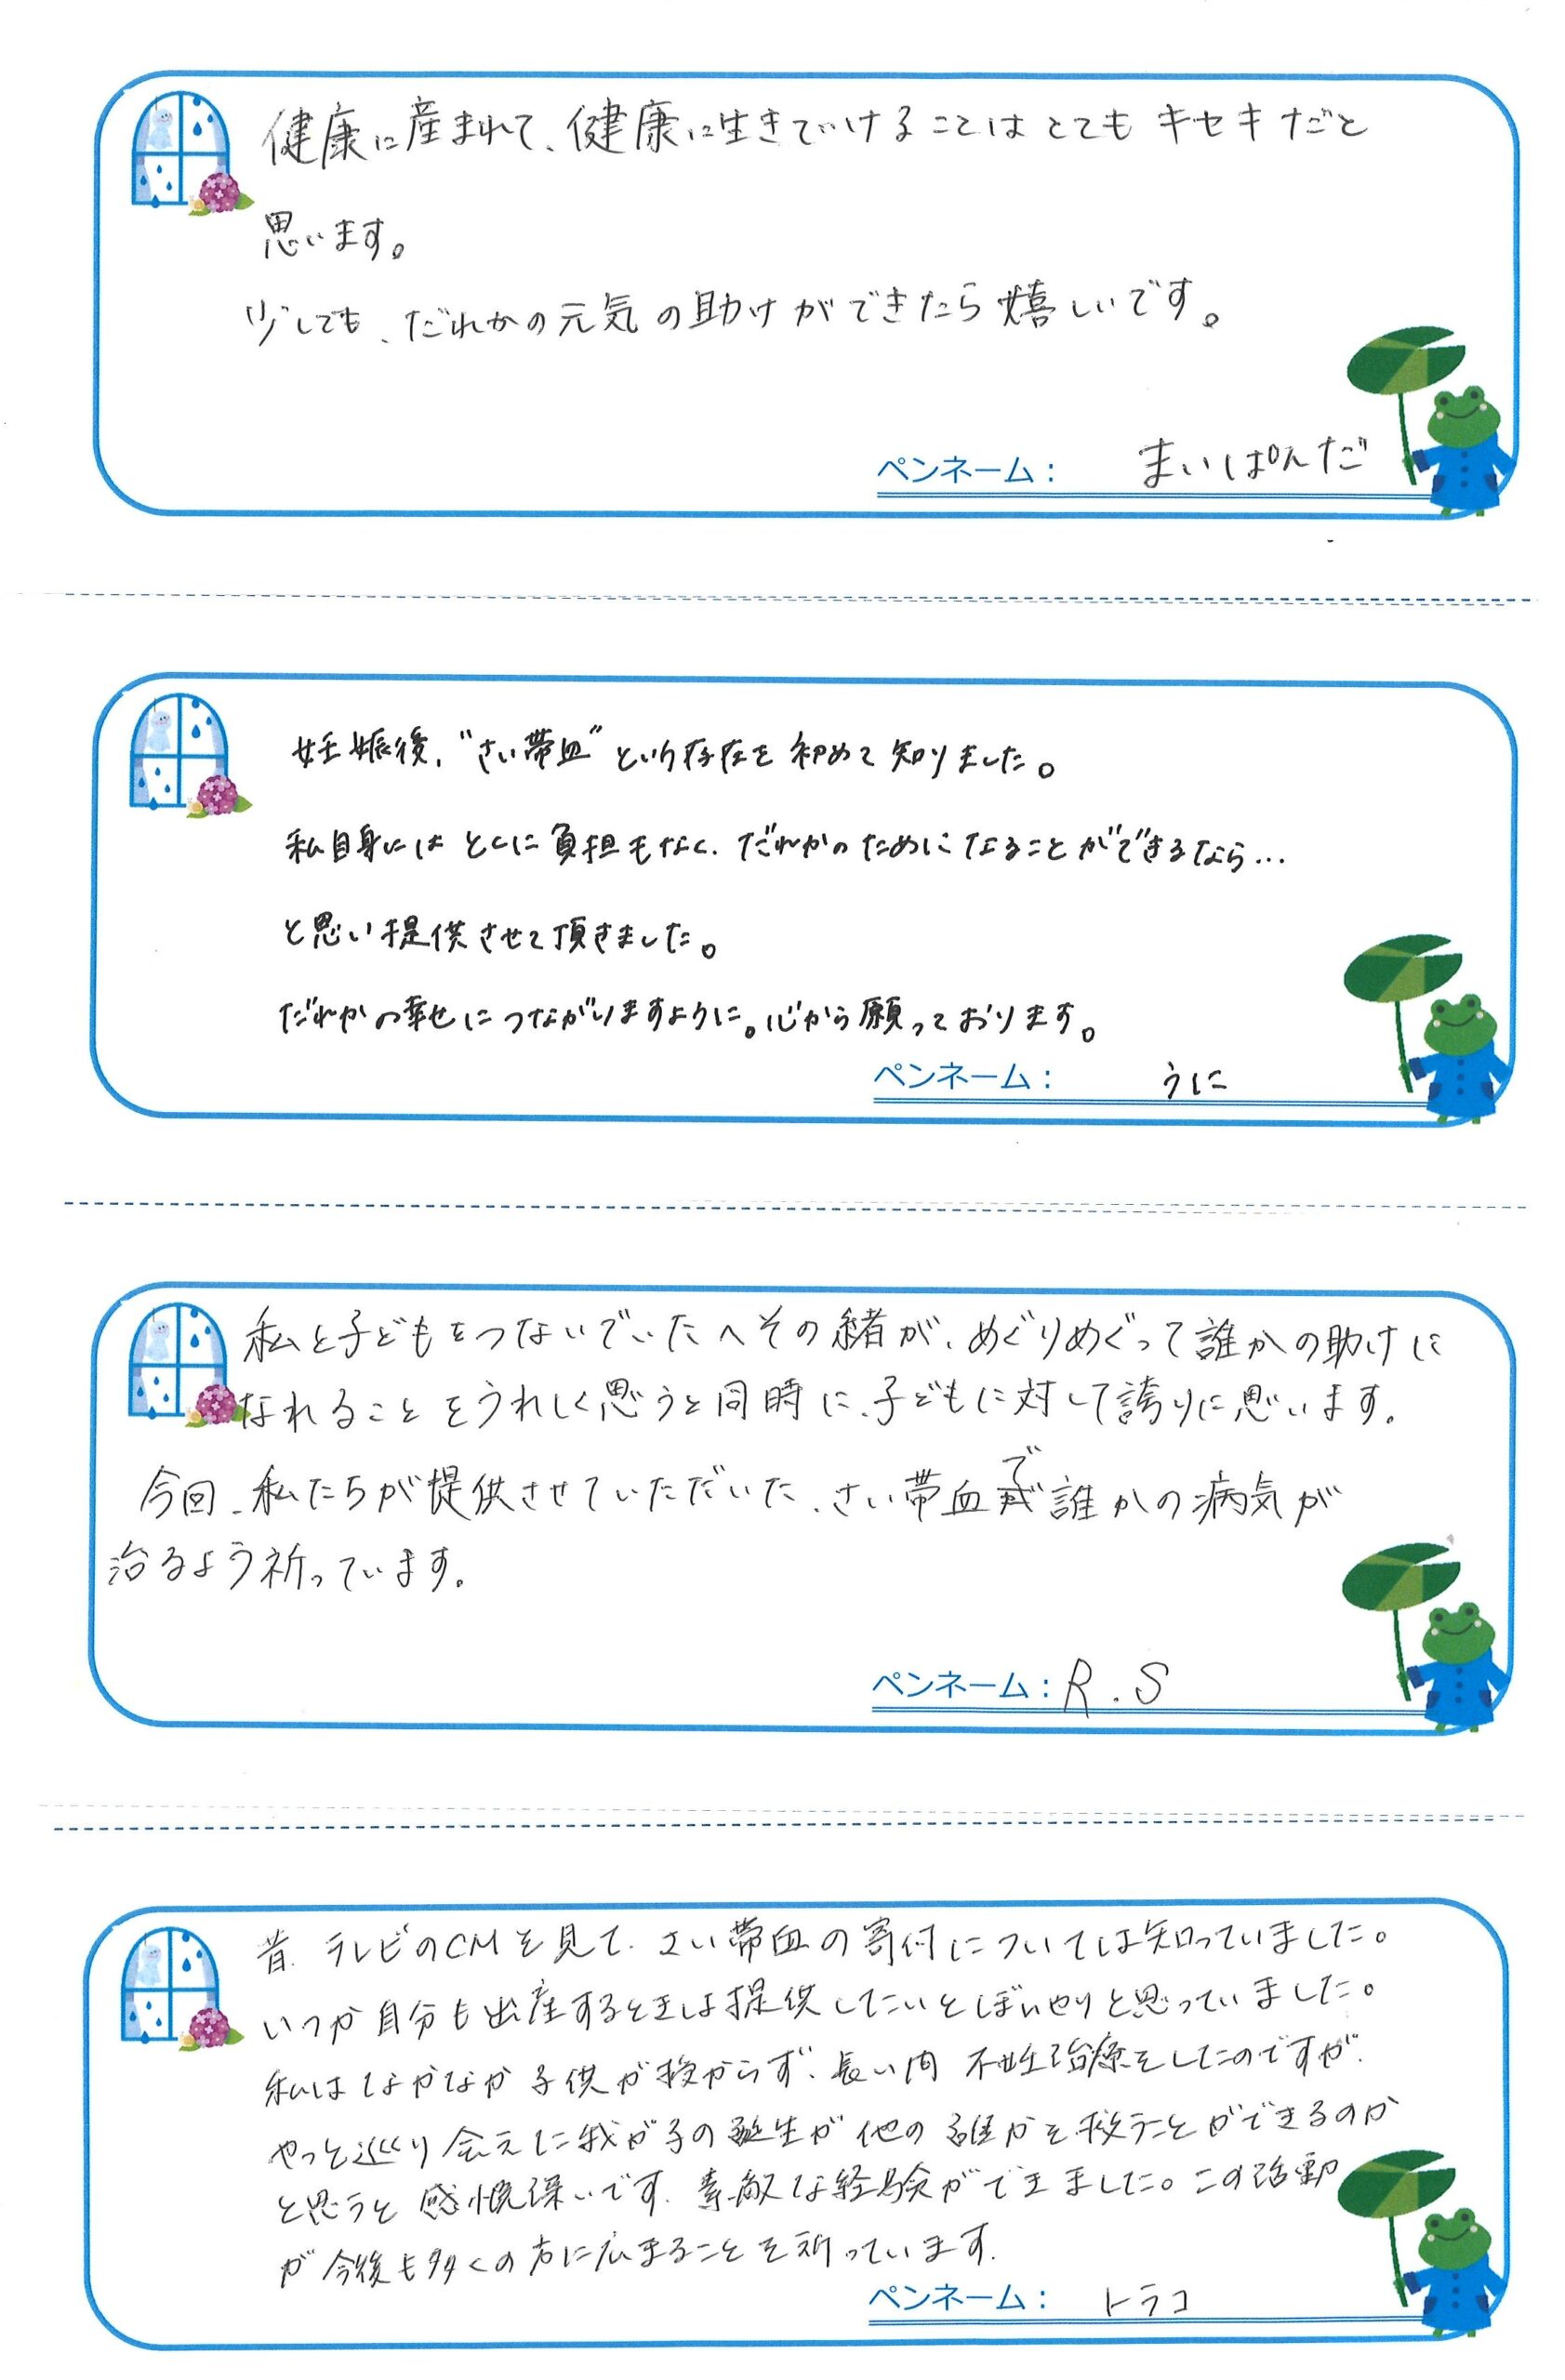 健康に産まれて、健康に生きていけることはとてもキセキだと
思います。
少しでも、だれかの元気の助けができたら嬉しいです。
ペンネーム： まいぱんだ
妊娠後、“さい帯血”という存在を初めて知りました。
私自身にはとくに負担もなく、だれかのためになることができるなら…
と思い提供させて頂きました。
だれかの幸せにつながりますように。心から願っております。
ペンネーム： うに
私と子どもをつないでいたへその緒が、めぐりめぐって誰かの助けに
なれることをうれしく思うと同時に、子どもに対して誇りに思います。
今回、私たちが提供させていただいた、さい帯血で誰かの病気が
治るよう祈っています。
ペンネーム： R.S
昔、テレビのCMを見て、さい帯血の寄付については知っていました。
いつか自分も出産するときは提供したいとぼんやりと思っていました。
私はなかなか子供が授からず、長い間 不妊治療をしたのですが、
やっと巡り会えた我が子の誕生が他の誰かを救うことができるのか
と思うと感慨深いです。素敵な経験ができました。この活動
が今後も多くの方に広まることを祈っています。
ペンネーム： トラコ